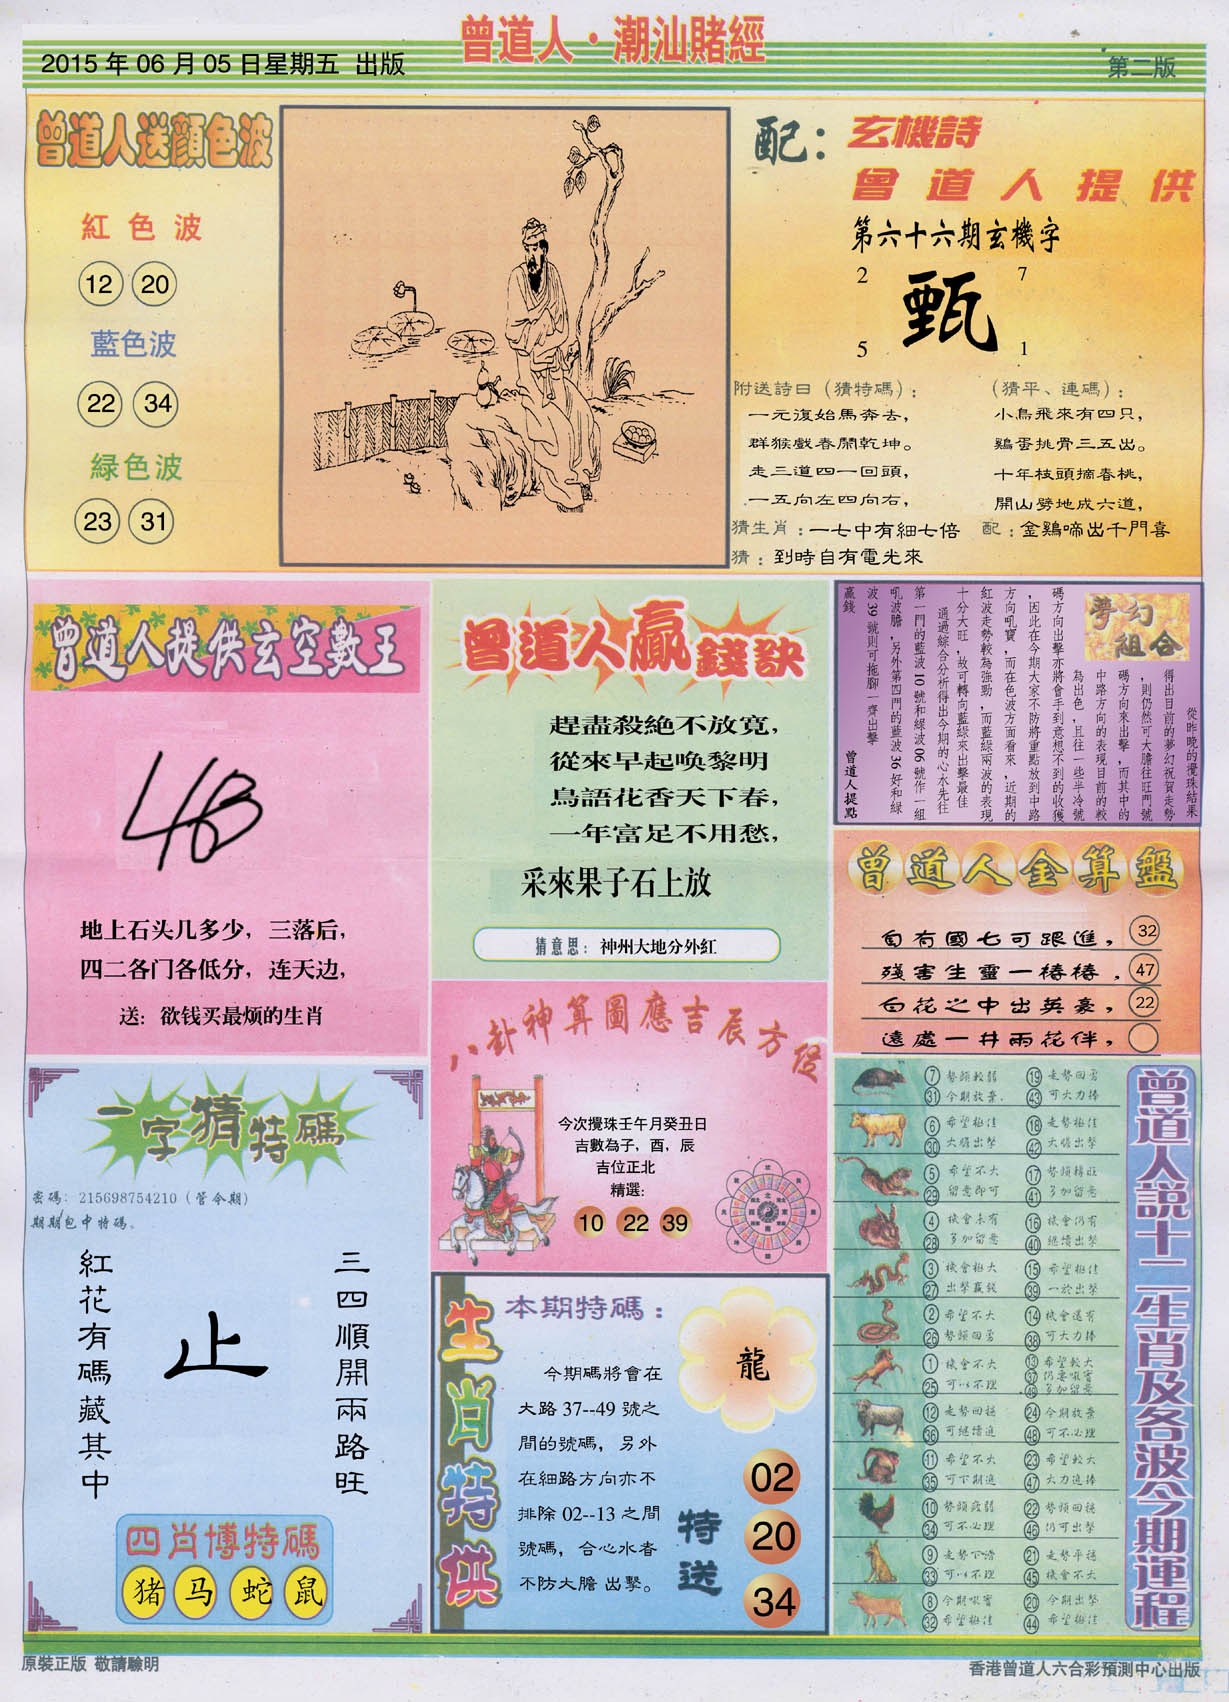 曾道人·潮汕賭經
2015 年 06 月 05 日星期五 出版
第二版
曾道人送顏色波
紅色波
12 20
藍色波
22 34
緑色波
23 31
配：玄機詩
曾道人提供
第六十六期玄機字
2 7
甄
5 1
附送詩曰（猜特碼）：
一元復始馬奔去，
群猴戲春鬧乾坤。
走三道四一回頭，
一五向左四向右，
（猜平、連碼）：
小鳥飛來有四只，
鷄蛋挑骨三五出。
十年枝頭摘春桃，
開山劈地成六道，
猜生肖：一七中有細七倍 配：金鷄啼出千門喜
猜：到時自有電光來
曾道人提供玄空數王
48
地上石头几多少，三落后，
四二各门各低分，连天边，
送：欲钱买最烦的生肖
曾道人贏錢訣
趕盡殺絕不放寬，
從來早起喚黎明
鳥語花香天下春，
一年富足不用愁，
采來果子石上放
猜意思：神州大地分外紅
夢幻組合
從昨晚的攪珠結果
得出目前的夢幻祝賀走勢
，則仍然可大膽往旺門號
碼方向來出擊，而其中的
中路方向的表現目前的較
為出色，且往一些半冷號
碼方向出擊亦將會手到意想不到的收獲
，因此在今期大家不防將重點放到中路
方向吼寶，而在色波方面看來，近期的
紅波走勢較為強勁，而藍綠兩波的表現
十分大旺，故可轉向藍綠來出擊最佳
通過綜合分析得出今期的心水先往
第一門的藍波 10 號和緑波 06 號作一組
吼波膽，另外第四門的藍波 36 好和緑
波 39 號則可拖腳一齊出擊
贏錢 曾道人提點
曾道人金算盤
旬有國七可跟進， 32
殘害生靈一樁樁， 47
白花之中出英豪， 22
遠處一井兩花伴，
八卦神算圖應吉辰方位
今次攪珠壬午月癸丑日
吉數為子，酉，辰
吉位正北
精選：
10 22 39
一字猜特碼
密碼：215698754210（管令期）
期期包中特碼。
三四順開兩路旺
止
紅花有碼藏其中
四肖博特碼
猪 马 蛇 鼠
生肖特供
本期特碼：
龍
今期碼將會在
大路 37--49 號之
間的號碼，另外
在細路方向亦不
排除 02--13 之間
號碼，合心水者
不防大膽 出擊。
特送
02
20
34
曾道人説十二生肖及各波今期運程
7 勢頭較弱 19 走勢回勇
31 今期放棄 43 可大力捧
6 希望極佳 18 走勢極佳
30 大膽出擊 42 大膽出擊
5 希望不大 17 勢頭轉旺
29 留意即可 41 多加留意
4 機會未有 16 機會仍有
28 多加留意 40 繼續出擊
3 機會極大 15 希望極佳
27 出擊贏錢 39 一於出擊
2 希望不大 14 機會還有
26 勢頭回勇 38 可大力捧
1 機會不大 13 希望較大
25 可以不理 37 仍要吼實
49 多加留意
12 走勢回穩 24 今期放棄
36 可繼續追 48 可不必理
11 希望不大 23 希望較大
35 可下期追 47 大力追捧
10 勢頭疲弱 22 勢頭回穩
34 可不必理 46 仍可出擊
9 走勢下滑 21 走勢平穩
33 可以不理 45 機會不大
8 今期吼實 20 今期出擊
32 希望極佳 44 希望極佳
原裝正版 敬請驗明
香港曾道人六合彩預測中心出版